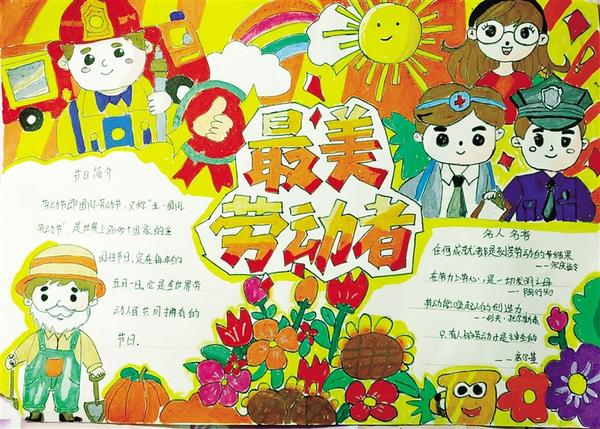 最美
劳动者
节日简介
劳动节即国际劳动节,又称"五一国际
劳动节",是世界上80多个国家的全
国性节日,定在每年的
五月一日。它是全世界劳
动人民共同拥有的
节日.
名人名言
任何成就都是刻苦劳动的结果
——宋庆龄
在劳力上劳心,是一切发明之母
——陶行知
劳动能唤起人的创造力
——列夫·托尔斯泰
只有人的劳动才是神圣的
——高尔基